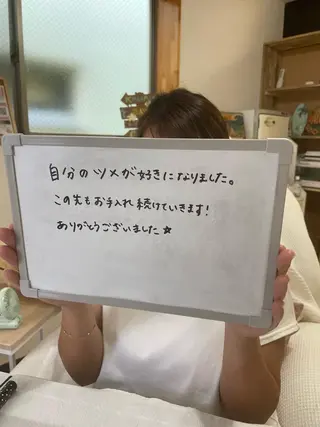 自分のツメが好きになりました。
この先もお手入れ続けていきます!
ありがとうございました★